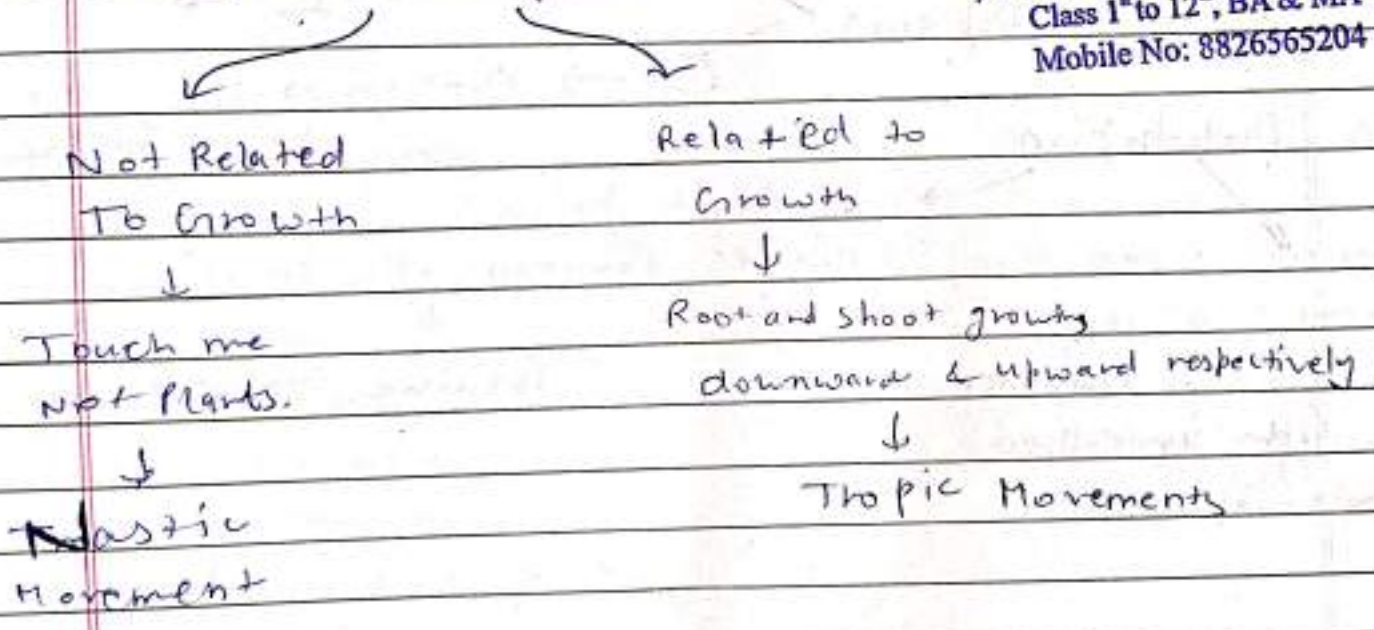 Class 1st to 12th, BA & MA
Mobile No: 8826565204
Not Related
To Growth
↓
Touch me
Not Plants.
↓
Nastic
Movement
Related to
Growth
↓
Root and shoot growing
downward & upward respectively
↓
Tropic Movements